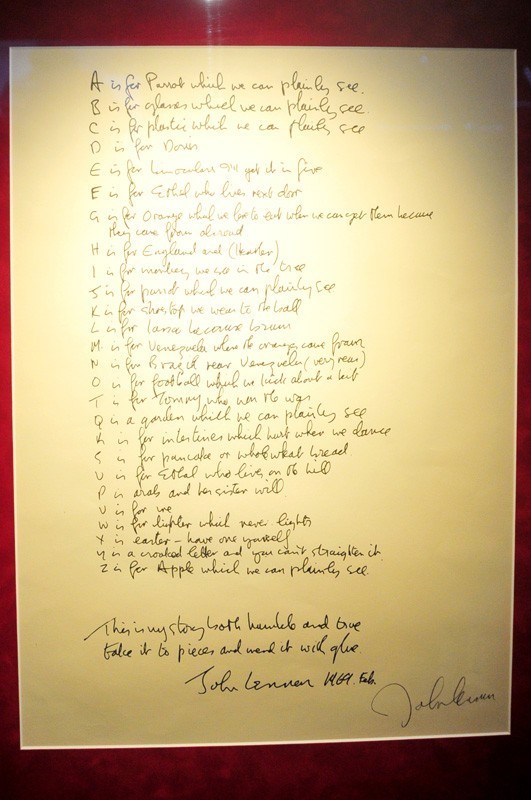 A is for Parrot which we can plainly see.
B is for glasses which we can plainly see.
C is for plastic which we can plainly see
D is for Doris
E is for binoculars I'll get it in five
E is for Ethel who lives next door
G is for Orange which we love to eat when we can get them because
they come from abroad
H is for England and (Heather)
I is for monkey we see in the tree
J is for parrot which we can plainly see
K is for shoetop we wear to the ball
L is for because brown
M is for Venezuela where the oranges come from
N is for Brazil near Venezuela (very near)
O is for football which we kick about a bit
T is for Tommy who won the war
Q is a garden which we can plainly see
R is for intestines which hurt when we dance
S is for pancake or wholewheat bread.
U is for Ethel who lives on the hill
P is arab and her sister will
V is for me
W is for lighter which never lights
X is easter – have one yourself
Y is a crooked letter and you can't straighten it
Z is for Apple which we can plainly see.
This is my story both humble and true
take it to pieces and mend it with glue
John Lennon 1969. Feb.
John Lennon